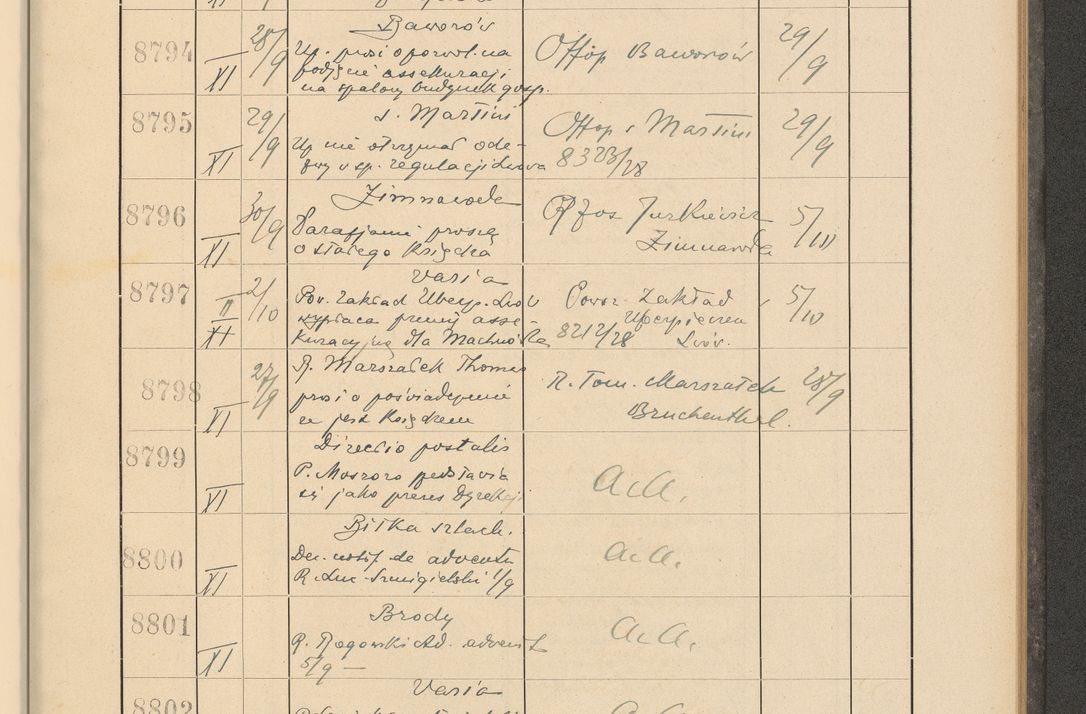 8794 XI 28/9 Baworów
Up. prosi o pozwol. na
podjęcie assekuracji
na spalony budynek gosp.
Offōp Baworów 29/9
8795 XI 29/9 s. Martini
Up nie otrzymał ode-
zwy w sp. regulacji Lwowa
Offōp s Martini
8323/28 29/9
8796 XI 30/9 Zimnawoda
Parafjanie proszą
o starego Księdza
Jurkiewicz
Zimnawoda 5/10
8797 II XI 2/10 Varia
Pow. Zakład Ubezp. Lwów
wypłaca premij asse-
kuracyjną dla
Powsz. Zakład
Ubezpieczen
8212/28 Lwów. 5/10
8798 XI 27/9 R. Marszałek Thomas
prosi o poświadczenie
że jest Księdzem
R. Tom. Marszałek
Bruchenthal. 28/9
8799 XI Directio postalis
P. Moszoro przedstawia
się jako prezes Dyrekcji
a.a.
8800 XI Biłka szlach.
Dec. notif. de adventu
R. Luc. Smigielski 1/9
a.a.
8801 XI Brody
R. Rogowski Ad. advenit
5/9 —
a.a.
8802 Varia